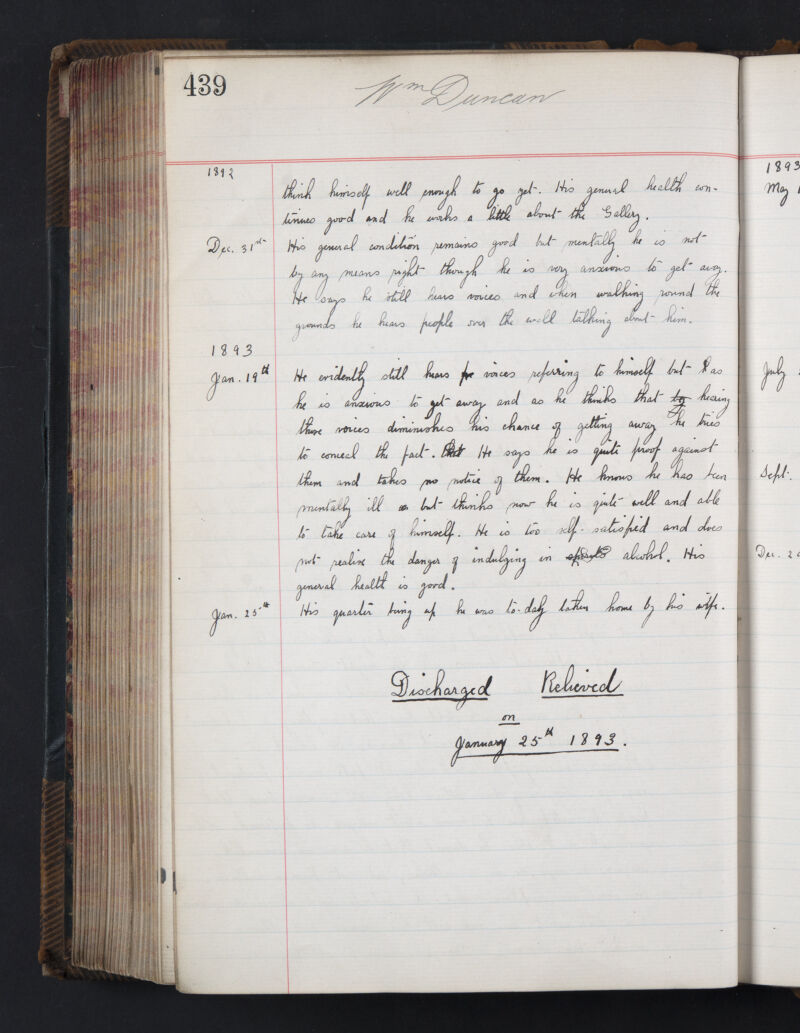 439
Wm Duncan
1892
think himself well enough to go yet. His general health con-
tinues good and he works a little about the Gallery.
Dec. 31st His general condition remains good but mentally he is not
by any means right though he is very anxious to get away.
He says he still hears voices and when walking round the
grounds he hears people over the wall talking about him.
1893
Jan. 19th He evidently still hears voices referring to himself but as
he is anxious to get away and as he thinks that hearing
these voices diminishes his chance of getting away he tries
to conceal the fact. that He says he is quite proof against
them and takes no notice of them. He knows he has been
mentally ill but thinks now he is quite well and able
to take care of himself. He is too self-satisfied and does
not realise the danger of indulging in alcohol. His
general health is good.
Jan. 25th His quarter being up he was to-day taken home by his wife.
Discharged Relieved
on
January 25th 1893.
1893
May 1
July
Sept.
Dec. 2